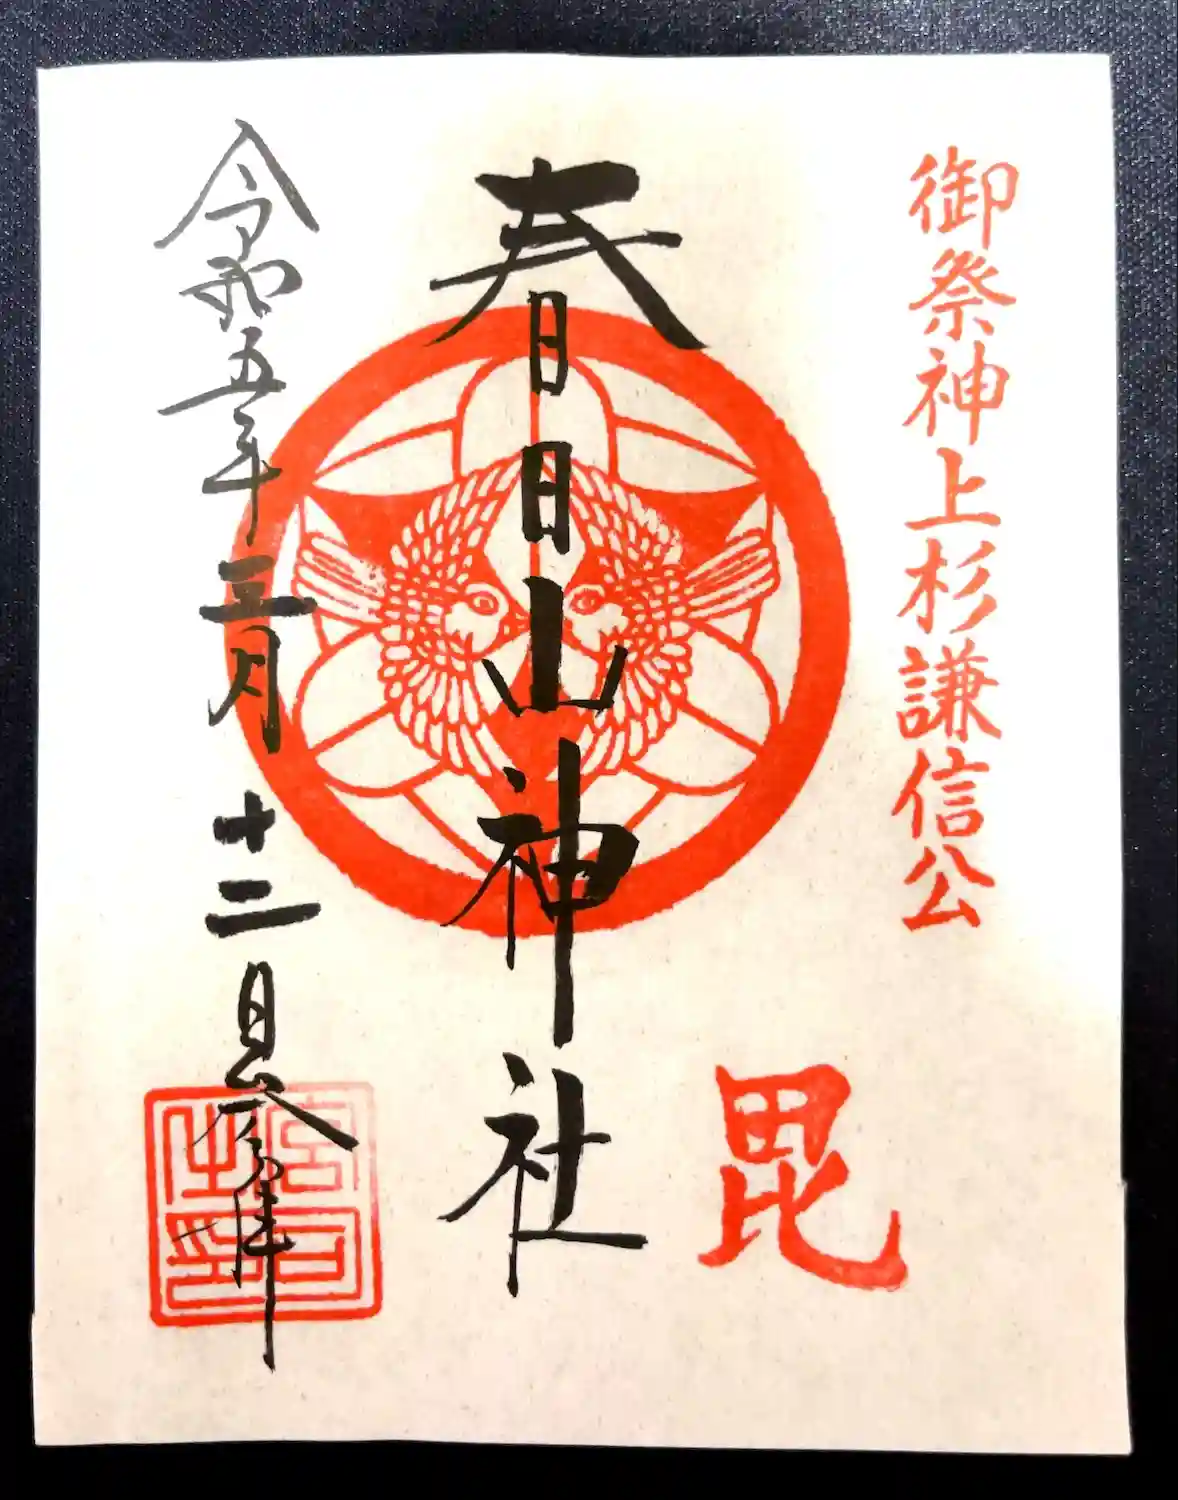 御祭神上杉謙信公
毘
春日山神社
令和五年三月十二日参拝
宮司之印